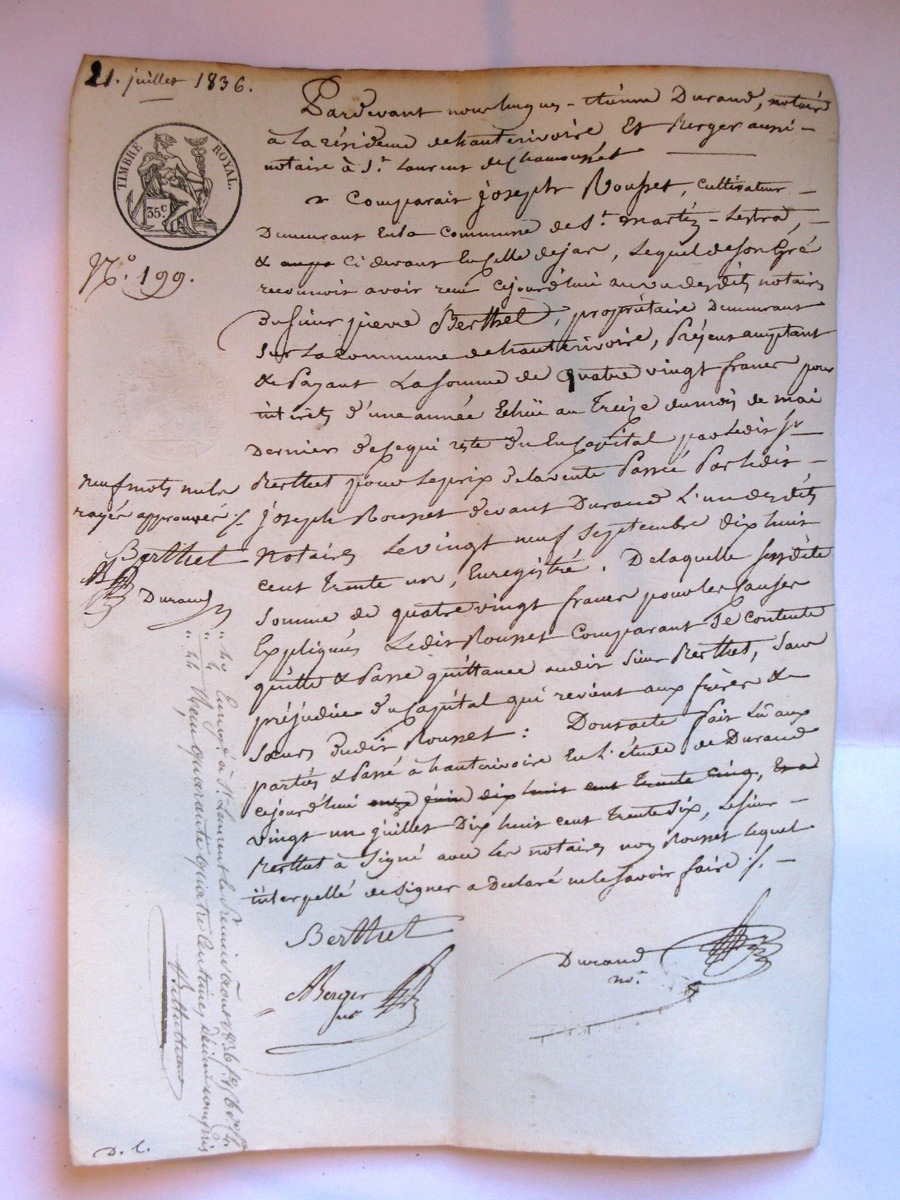 21. juillet 1836.
TIMBRE ROYAL.
35c
N.o 199.
Pardevant nous hugues-etienne Durand, notaire
à La résidence de hauterivoire Et Berger aussi
notaire à St. Laurent de Chamousset
Comparait joseph Rousset, cultivateur
Demeurant En la Commune de St. martin-Lestra,
& ci devant En Celle de jas, Lequel de Son Gré
reconnoit avoir recu Cejourd'hui au vu desdits notaires
Du Sieur pierre Berthet, propriétaire Demeurant
Sur La Commune de hauterivoire, Présent acceptant
& Payant La Somme de Quatre vingt francs pour
interets d'une année Echüe au Treize du mois de mai
Dernier de Ce qui reste du En Capital par Ledit Sr
Berthet pour Le prix de la vente Passée Par Ledit
joseph Rousset devant Durand L'un desdits
Notaires Le vingt neuf Septembre dix huit
Cent Trente un, Enregistré. De laquelle Susdite
Somme de quatre vingt francs pour les Causes
Expliquées Ledit Rousset Comparant Se Contente
quitte & Passe quittance audit Sieur Berthet, Sans
préjudice du Capital qui revient aux frères &
Sœurs dudit Rousset : Dont acte fait Lû aux
parties & Passé à hauterivoire En L'étude de Durand
Cejourd'hui onze juin dix huit cent Trente Cinq,
vingt un juillet Dix huit Cent Trente Six, Le Sieur
Berthet à Signé avec Les notaires non Rousset Lequel
interpellé de Signer a Déclaré ne le Savoir faire ./.
neuf mots nuls
rayés approuvés ./.
Berthet
Durand
Berthet
Berger
nre
Durand
no.
Enregé à St. Laurent le premier août 1836 fo
quarante quatre Centimes Décime compris
D. C.